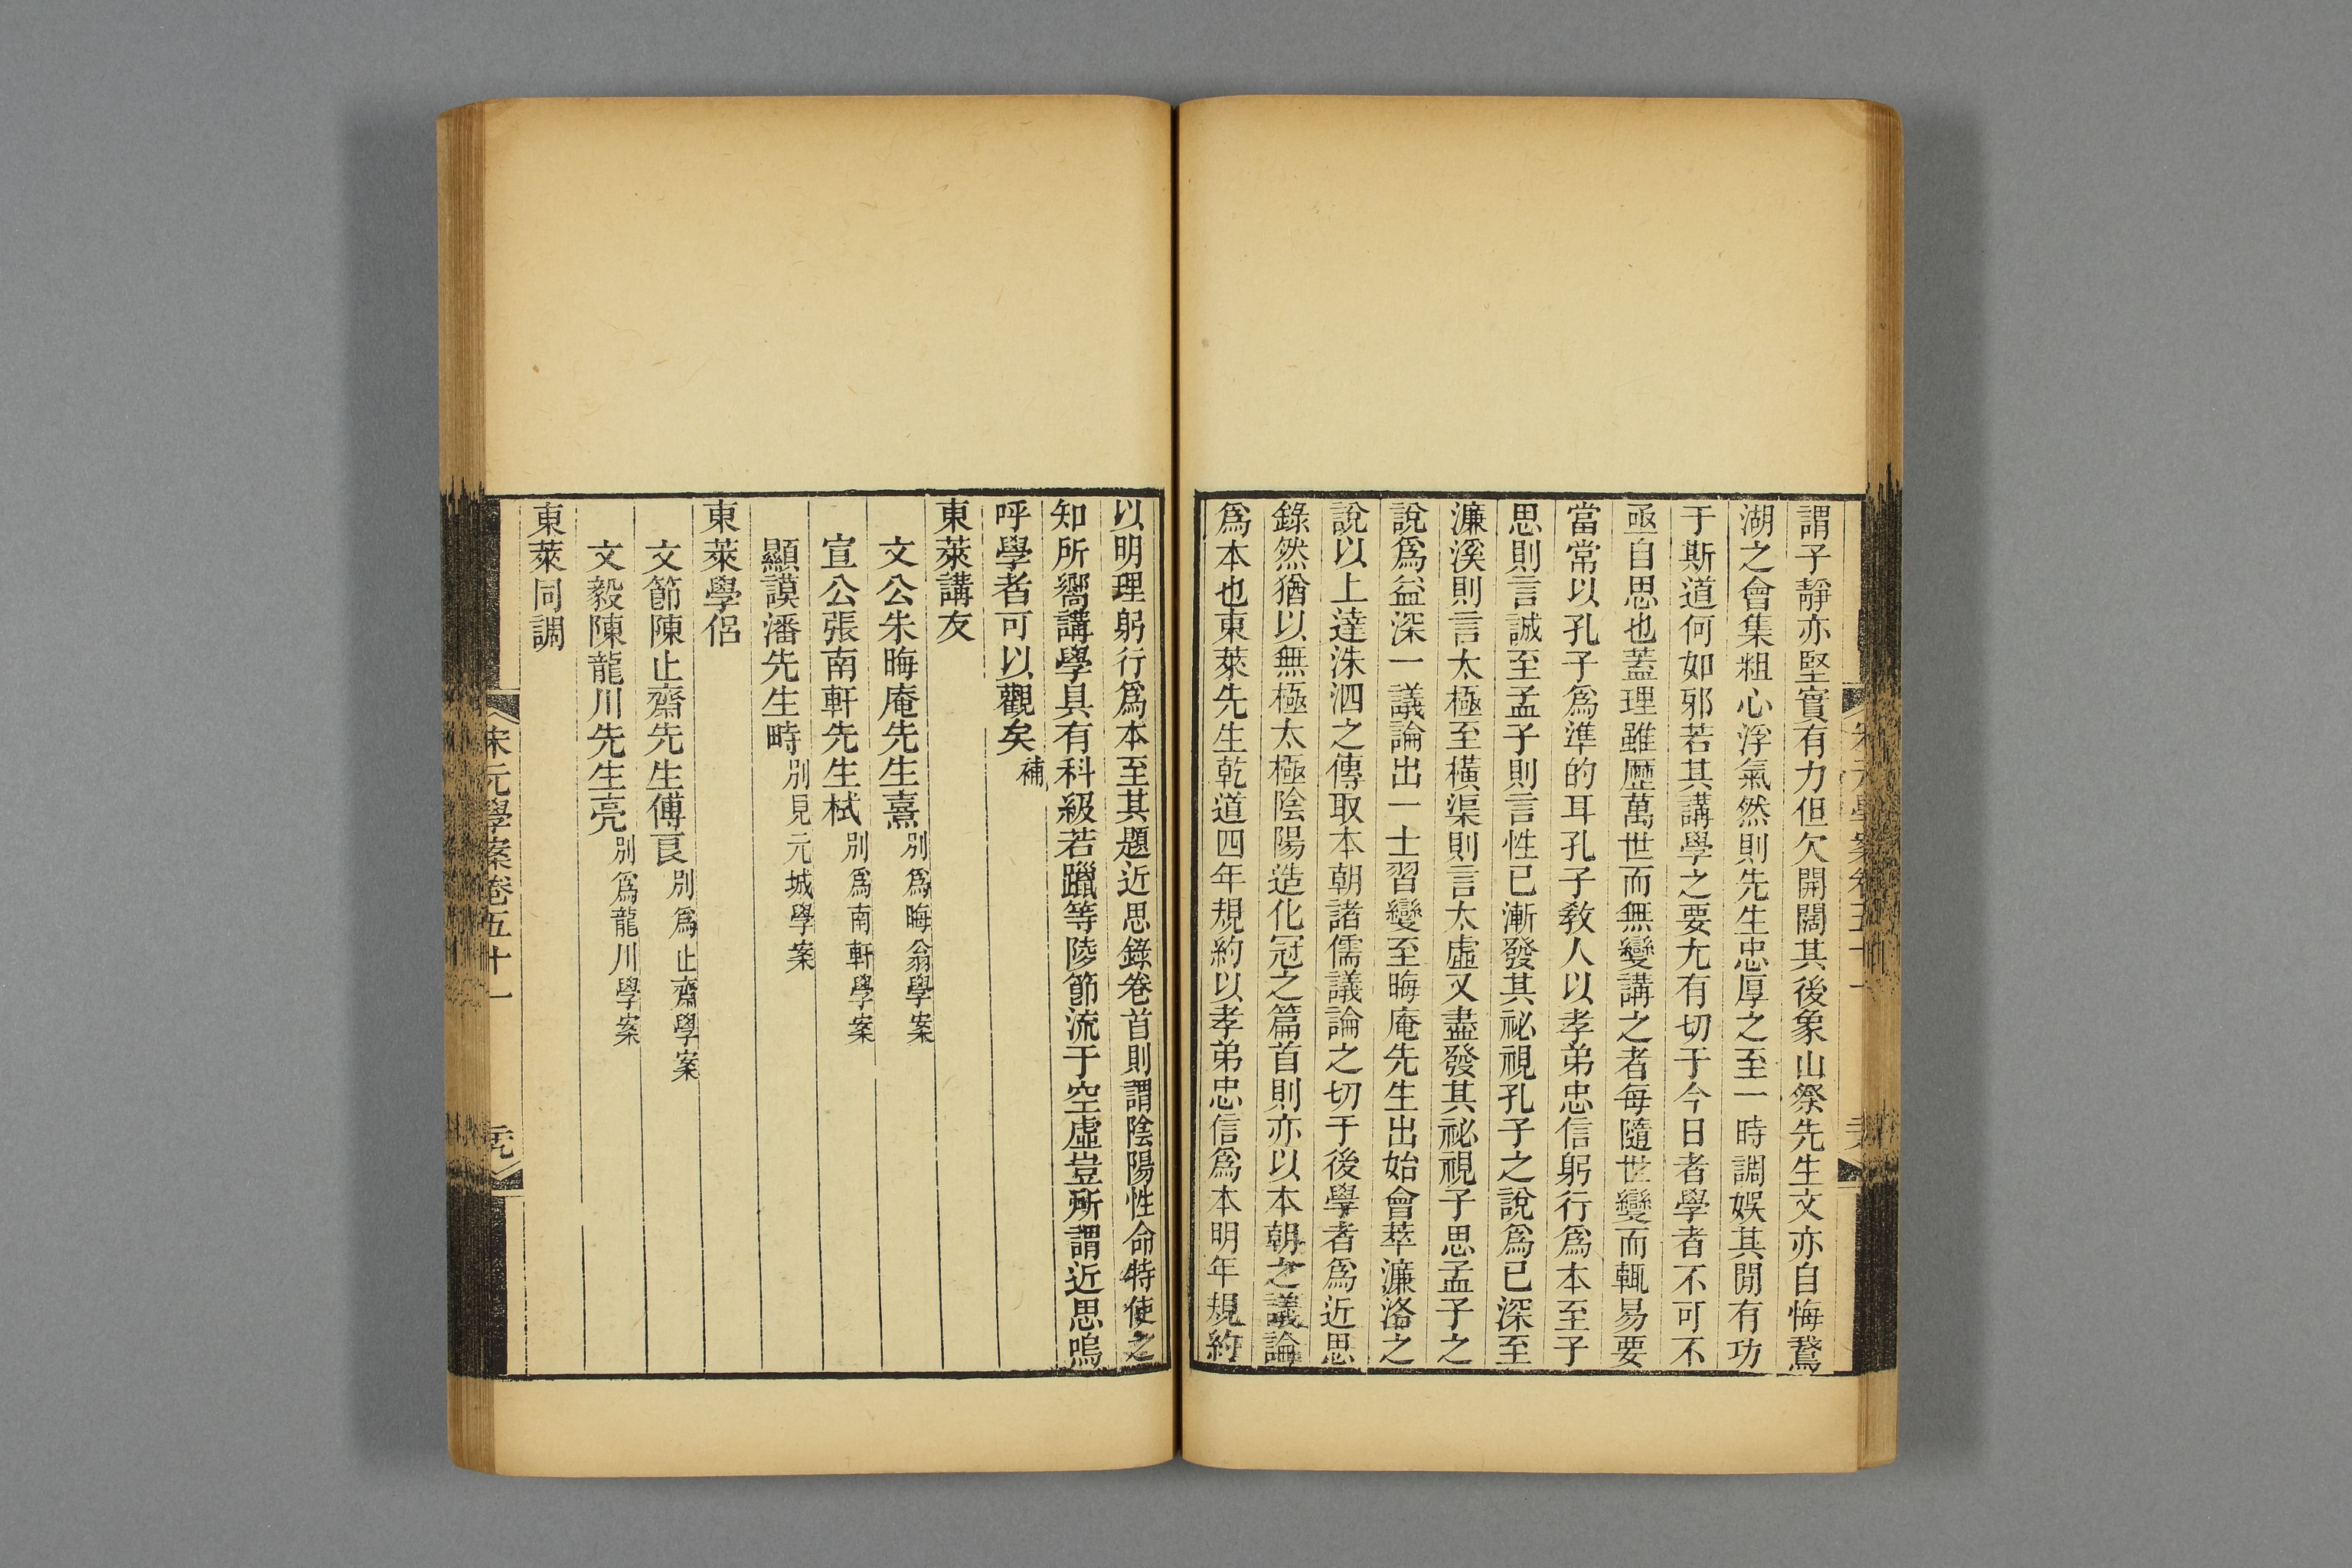 謂子靜亦堅實有力但欠開闊其後象山祭先生文亦自悔鵞
湖之會集粗心浮氣然則先生忠厚之至一時調娛其閒有功
于斯道何如邪若其講學之要尤有切于今日者學者不可不
亟自思也蓋理雖歷萬世而無變講之者每隨世變而輒易要
當常以孔子爲準的耳孔子教人以孝弟忠信躬行爲本至子
思則言誠至孟子則言性已漸發其祕視孔子之說爲已深至
濂溪則言太極至橫渠則言太虛又盡發其祕視子思孟子之
說爲益深一議論出一士習變至晦庵先生出始會萃濂洛之
說以上達洙泗之傳取本朝諸儒議論之切于後學者爲近思
錄然猶以無極太極陰陽造化冠之篇首則亦以本朝之議論
爲本也東萊先生乾道四年規約以孝弟忠信爲本明年規約
以明理躬行爲本至其題近思錄卷首則謂陰陽性命特使之
知所嚮講學具有科級若躐等陵節流于空虛豈所謂近思嗚
呼學者可以觀矣補
東萊講友
文公朱晦庵先生熹別爲晦翁學案
宣公張南軒先生栻別爲南軒學案
顯謨潘先生畤別見元城學案
東萊學侶
文節陳止齋先生傅良別爲止齋學案
文毅陳龍川先生亮別爲龍川學案
東萊同調
宋元學案卷五十一